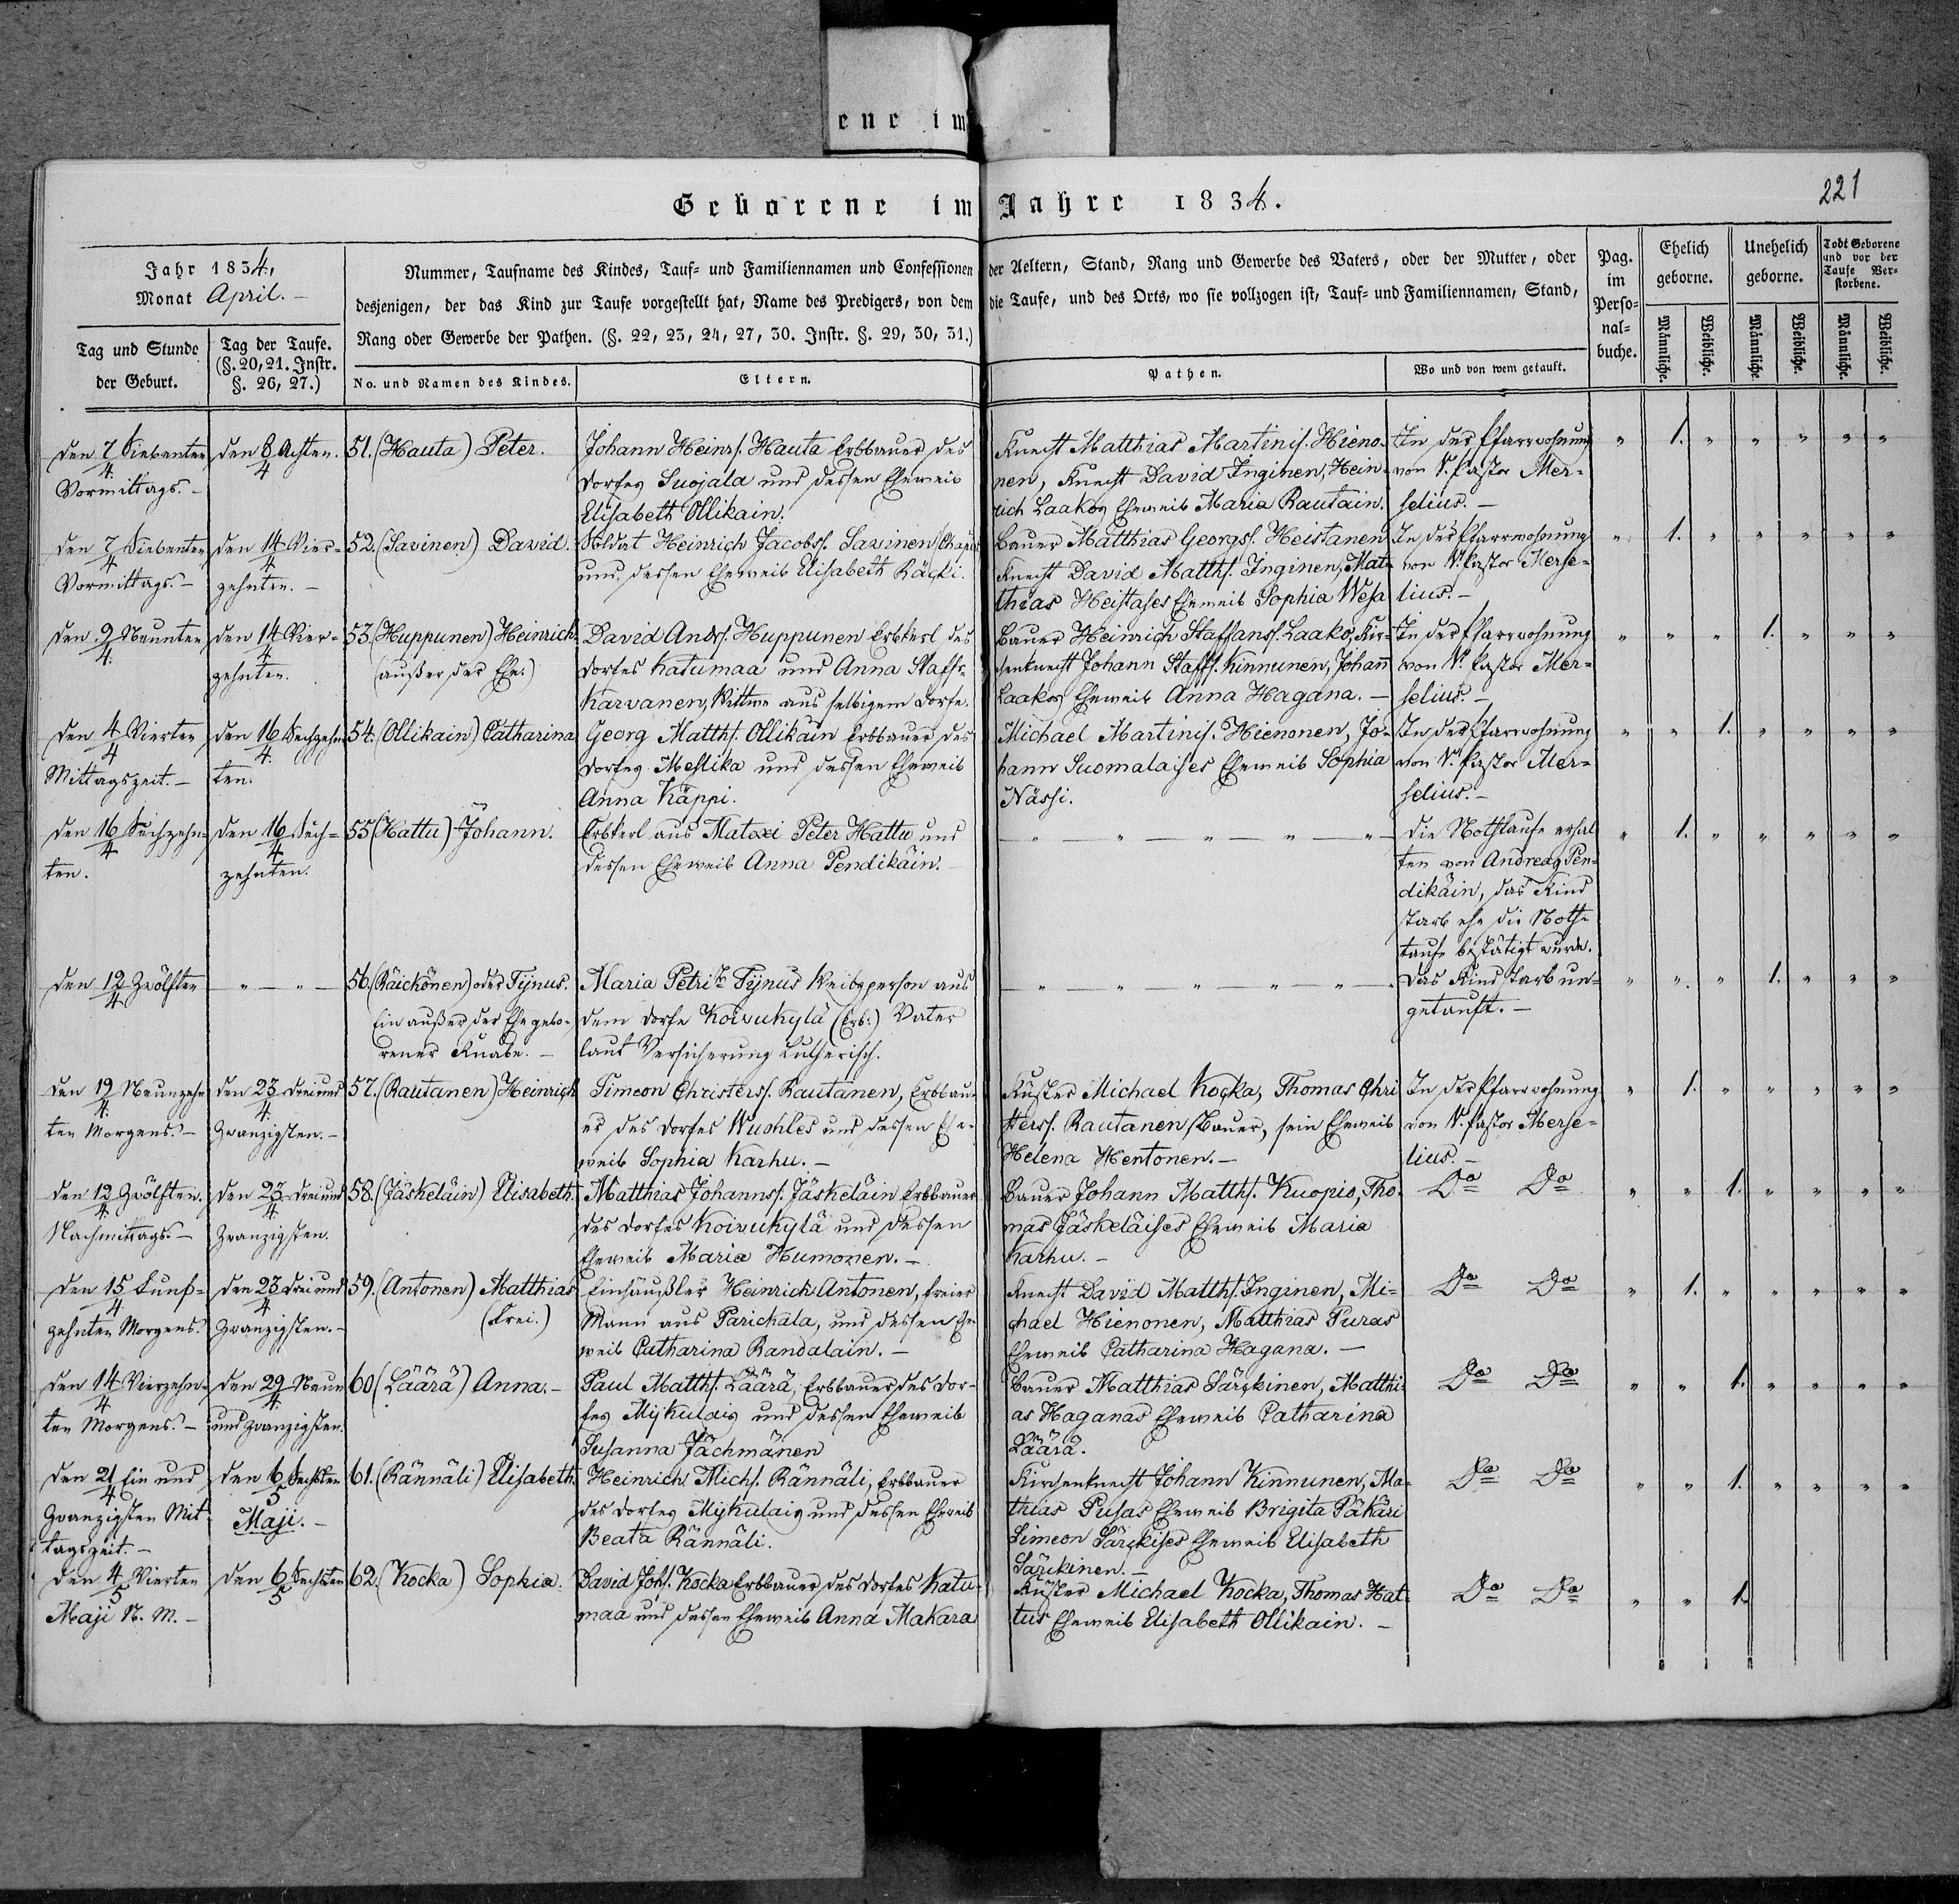 ene im
Geborene im Jahre 1834.
221
Jahr 1834,
Monat April. –
Nummer, Taufname des Kindes, Tauf- und Familiennamen und Confessionen der Aeltern, Stand, Rang und Gewerbe des Vaters, oder der Mutter, oder
desjenigen, der das Kind zur Taufe vorgestellt hat, Name des Predigers, von dem die Taufe, und des Orts, wo sie vollzogen ist, Tauf- und Familiennamen, Stand,
Rang oder Gewerbe der Pathen. (§. 22, 23, 24, 27, 30. Instr. §. 29, 30, 31.)
Pag.
im
Perso-
nal-
buche.
Ehelich
geborne.
Unehelich
geborne.
Todt Geborene
und vor der
Taufe Ver-
storbene.
Männliche.
Weibliche.
Männliche.
Weibliche.
Männliche.
Weibliche.
Tag und Stunde
der Geburt.
Tag der Taufe.
(§. 20, 21. Instr.
§. 26, 27.)
No. und Namen des Kindes.
Eltern.
Pathen.
Wo und von wem getauft.
den 7/4 Siebenten
Vormittags. –
den 8/4 Achten.
51. (Hauta) Peter.
Johann Heinrs. Hauta Erbbauer des
Dorfes Suojala und dessen Eheweib
Elisabeth Ollikain.
Knecht Matthias Martinis. Hieno-
nen, Knecht David Inginen, Hein-
rich Laakos Eheweib Maria Rautain.
In der Pfarrwohnung
von V. Pastor Mer-
selius. –
" 1. " " " " "
den 7/4 Siebenten
Vormittags. –
den 14/4 Vier-
zehnten. –
52. (Savinen) David.
Soldat Heinrich Jacobss. Savinen
und dessen Eheweib Elisabeth Räcki.
Bauer Matthias Georgs. Heistanen
Knecht David Matths. Inginen, Mat-
thias Heistases Eheweib Sophia Wesa
In der Pfarrwohnung
von V. Pastor Merse-
lius. –
" 1. " " " " "
den 9/4 Neunten
den 14/4 Vier-
zehnten.
53. (Huppunen) Heinrich
(außer der Ehe.)
David Ands. Huppunen Erbkerl des
Dorfes Katumaa und Anna Staffs-
Karvanen, Wittwe aus selbigem Dorfe.
Bauer Heinrich Staffans. Laako, Kir-
chenknecht Johann Staffs. Kinnunen, Johann
Laakos Eheweib Anna Hagana. –
In der Pfarrwohnung
von V. Pastor Mer-
selius. –
" " " 1. " " "
den 4/4 Vierten
Mittagszeit. –
den 16/4 Sechzehn-
ten.
54. (Ollikain) Catharina
Georg Matths. Ollikain Erbbauer des
Dorfes Meslika und dessen Eheweib
Anna Käppi.
Michael Martinis. Hienonen, Jo-
hann Suomalaises Eheweib Sophia
Nässi.
In der Pfarrwohnung
von V. Pastor Mer-
selius. –
" " 1. " " " "
den 16/4 Sechzehn-
ten.
den 16/4 Sech-
zehnten.
55 (Hattu) Johann.
Erbkerl aus Mataxi Peter Hattu und
dessen Eheweib Anna Pendikäin. –
– " – " – " – " – " –
die Nothtaufe erhal-
ten von Andreas Pen-
dikäin, das Kind
starb ehe die Noth-
taufe bestätigt wurde.
" 1. " " " " "
den 12/4 Zwölften
– " – " –
56. (Räickönen) oder Tijnus.
Ein außer der Ehe gebo-
rener Knabe. –
Maria Petri Tijnus Weibsperson aus
dem Dorfe Koivukylä (Erb:) Vater
laut Versicherung Lutherisch.
– " – " – " – " – " –
Das Kind starb un-
getauft. –
" " " 1. " " "
den 19/4 Neunzehn-
ten Morgens. –
den 23/4 drei und
Zwanzigsten. –
57. (Rautanen) Heinrich
Simeon Christers. Rautanen, Erbbau-
er des Dorfes Wuohles und dessen Ehe-
weib Sophia Karhu. –
Küster Michael Kocka, Thomas Chri-
sters. Rautanen Bauer, sein Eheweib
Helena Hentonen. –
In der Pfarrwohnung
von V. Pastor Merse-
lius. –
" 1. " " " " "
den 12/4 Zwölften.
Nachmittags. –
den 23/4 drei und
Zwanzigsten.
58. (Jäskeläin) Elisabeth.
Matthias Johanns. Jäskeläin Erbbauer
des Dorfes Koivukylä und dessen
Eheweib Maria Humonen. –
Bauer Johann Matths. Kuopio, Tho-
mas Jäskeläises Eheweib Maria
Karhu. –
Do Do
" " 1. " " " "
den 15/4 Funf-
zehnten Morgens.
den 23/4 drei und
Zwanzigsten. –
59. (Antonen) Matthias
(Frei.)
Einhäußler Heinrich Antonen, freier
Mann aus Parickala, und dessen Ehe-
weib Catharina Randalain. –
Knecht David Matths. Inginen, Mi-
chael Hienonen, Matthias Puras
Eheweib Catharina Hagana. –
Do Do
" 1. " " " " "
den 14/4 Vierzehn-
ten Morgens. –
den 29/4 Neun
und zwanzigsten.
60 (Läärä) Anna. –
Paul Matths. Läärä, Erbbauer des Dor-
fes Mijkulais und dessen Eheweib
Susanna Jächmänen
Bauer Matthias Särckinen, Matthi-
as Haganas Eheweib Catharina
Läärä.
Do Do
" " 1. " " " "
den 21/4 Ein und
Zwanzigsten Mit-
tagszeit. –
den 6/5 Sechsten
Maji. –
61. (Rännäli) Elisabeth
Heinrich Michs. Rännäli, Erbbauer
des Dorfes Mijkulais und dessen Eheweib
Beata Rännäli.
Kirchenknecht Johann Kinnunen, Ma-
thias Pusas Eheweib Brigita Päkäri
Simeon Särckises Eheweib Elisabeth
Särckinen. –
Do Do
" " 1. " " " "
den 4/5 Vierten
Maji N. M. –
den 6/5 Sechsten
62. (Kocka) Sophia.
David Johs. Kocka Erbbauer des Dorfes Katu-
maa und dessen Eheweib Anna Makara
Küster Michael Kocka, Thomas Hat-
tus Eheweib Elisabeth Ollikain. –
Do Do
" " 1.